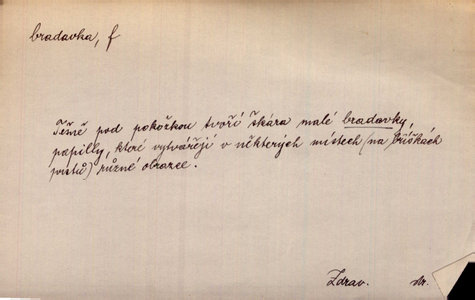 bradavka, f
Těsně pod pokožkou tvoří škára malé bradavky,
papilly, které vytvářejí v některých místech (na bříškách
prstů) různé obrazce.
Zdrav.